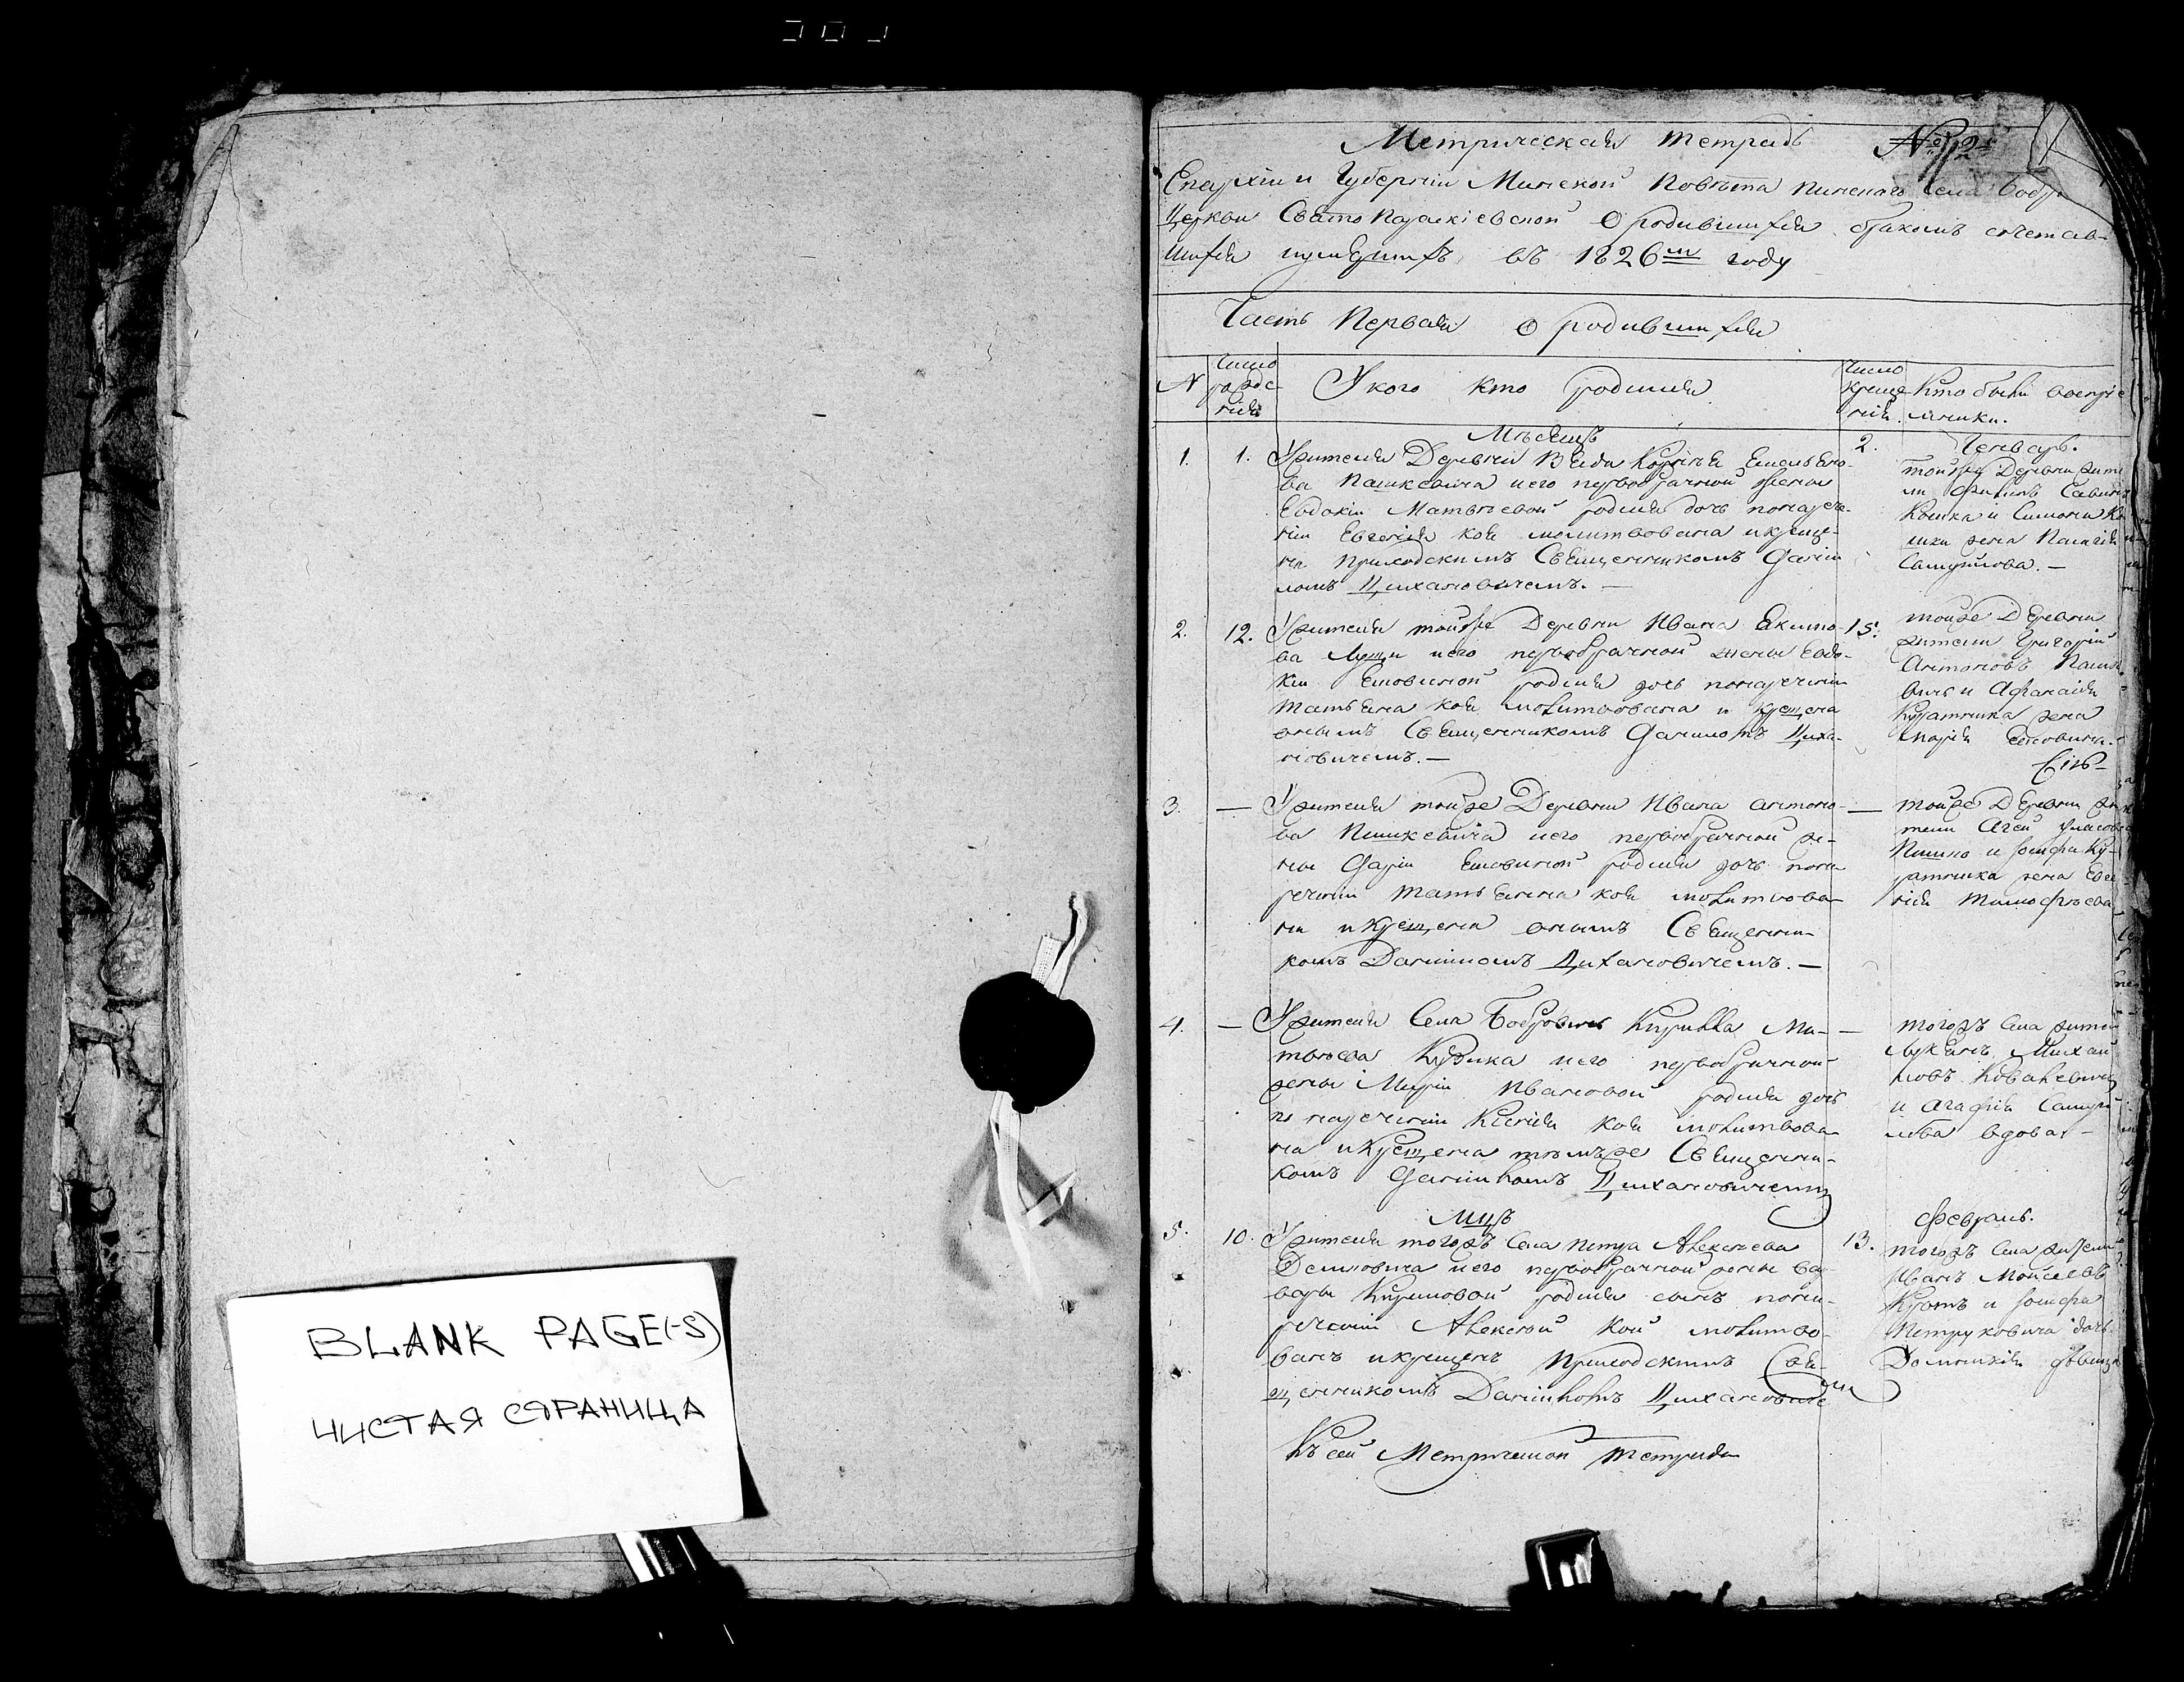 BLANK PAGE(-S)
ЧИСТАЯ СТРАНИЦА
Метрическая тетрадь
Епархіи и Губерніи Минской Повѣта Пинскаго Села Бобр
Церкви Свято Параскіевской О родившихся бракомъ сочетав-
шихся и умершихъ въ 1826м году
Часть Первая О родившихся
N
Число рожде-нія
У кого кто родился
Число креще-нія
Кто были воспріе-мники.
Мѣсяцъ
Генварь.
1.
1.
Жителя Деревни Корнѣя Емельяно-
ва Пашкевича и его первобрачной жены
Евдокіи Матвѣевой родися дочь по нарече-
ніи Евгенія коя молитвована и креще-
на приходскимъ Священникомъ Даніи
ломъ Цихановичемъ. —
2.
тойже Деревни жите
ли Савинъ
Кошка и Симона
жена Палагія
Самуйлова. —
2.
12.
Жителя тойже Деревни Ивана Якимо-
ва и его первобрачной жены Евдо-
кіи родися дочь по нареченіи
Татьяна коя молитвована и крещена
онымъ Священникомъ Даниломъ Циха-
новичемъ. —
15.
тойже Деревни
жители Григорій
Антоновъ
вичъ и Афанасія
Куратника жена
Марія
3.
—
Жителя тойже Деревни Ивана Антоно-
ва Пашкевича и его первобрачной же-
ны Даріи родися дочь по на
реченіи Татьянна коя молитвова-
на и крещена онымъ Священни-
комъ Даніиломъ Цихановичемъ. —
—
тойже Деревни жи
тели Агей
Пашко и Іосифа Ку-
ратника жена Евге
нія Тимофѣева
4.
—
Жителя Села Бобровичъ Кирилла Ма-
твѣева Кудика и его первобрачной
жены Маріи Ивановой родися дочь
по нареченіи Ксенія коя молитвова-
на и крещена тѣмъже Священни-
комъ Даніиломъ Цихановичемъ
—
тогожъ Села жите
Лукьянъ Михаи
ловъ Ковалевичъ
и Агафія Самуи
лова вдова —
Мцъ
Февраль.
5.
10.
Жителя тогожъ Села Петра Алексѣева
Демковича и его первобрачной жены Ва-
вары Кириловой родися сынъ по на-
реченіи Алексѣй кой молитво-
ванъ и крещенъ приходскимъ Свя-
щенникомъ Даніиломъ Цихановиче
мъ
13.
тогожъ Села жители
Иванъ Моисеевъ
Кротъ и Іосифа
Петруковича дочь
Домникія дѣвица
Къ сей Метричной Тетради